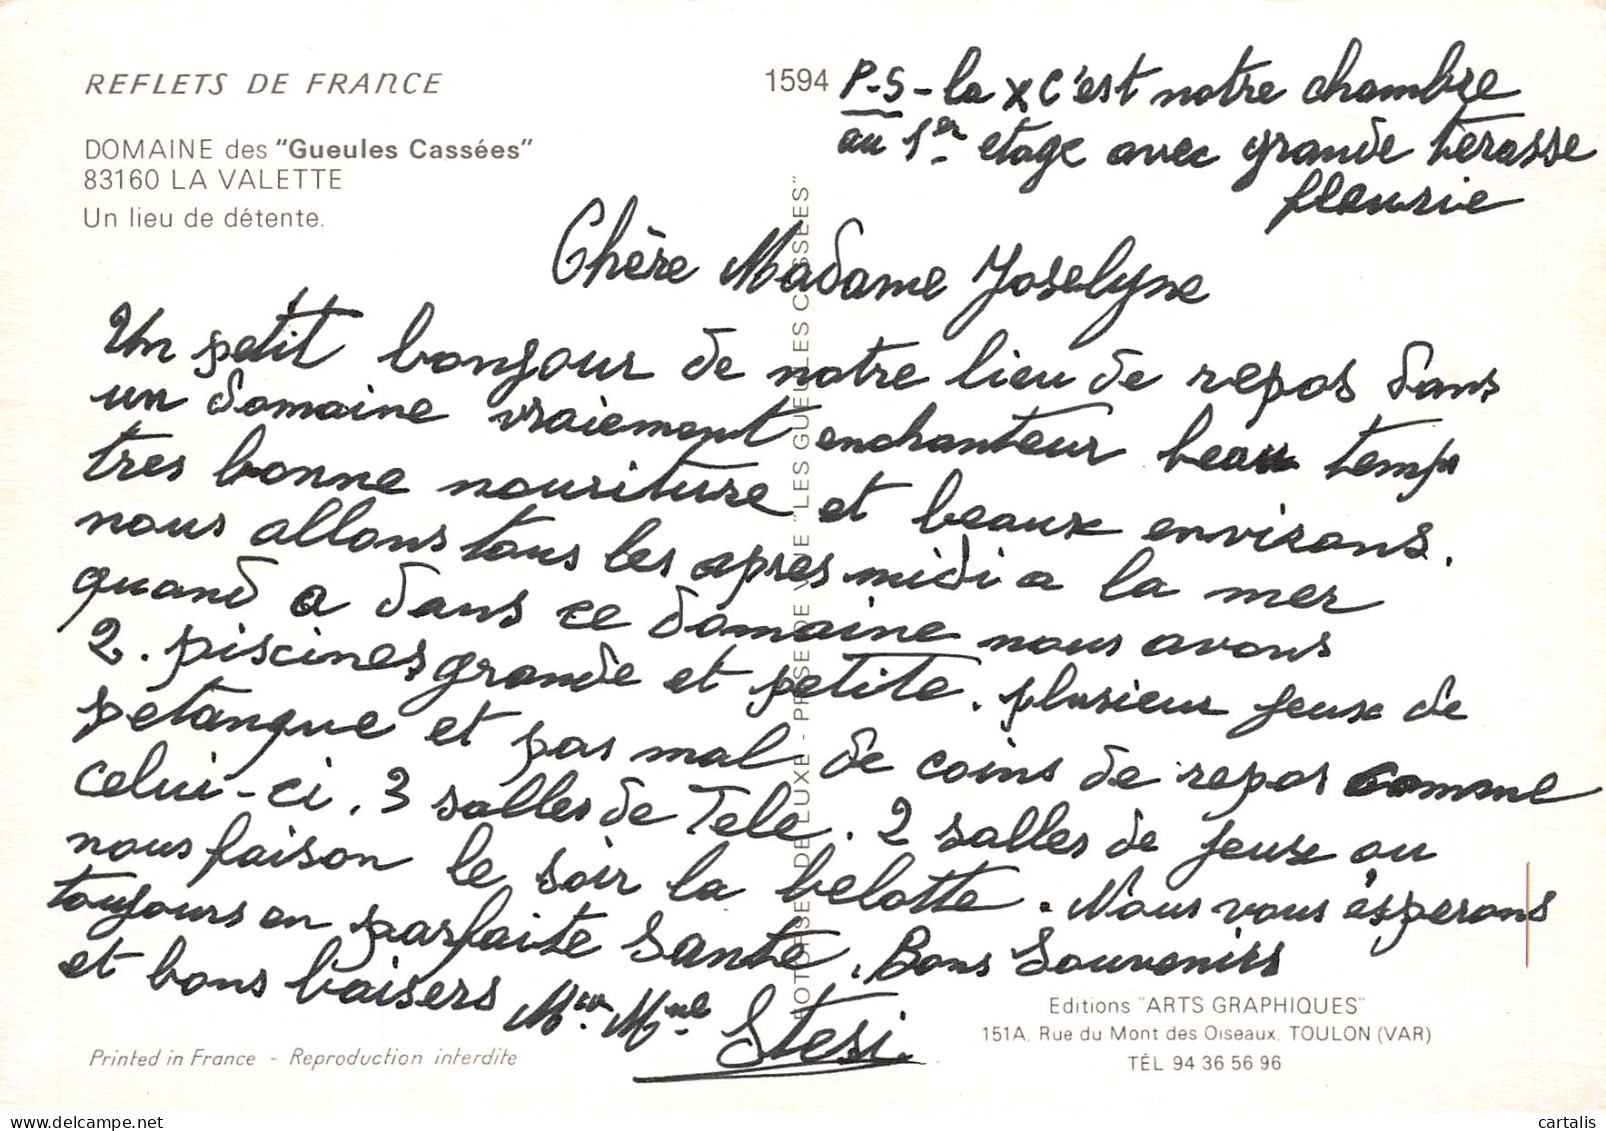 REFLETS DE FRANCE
DOMAINE des "Gueules Cassées"
83160 LA VALETTE
Un lieu de détente.
1594
P.S - la X c'est notre chambre
au 1er etage avec grande terasse
fleurie
Chère Madame Joselyne
Un petit bonjour de notre lieu de repos dans
un domaine vraiement enchanteur beau temps
tres bonne nouriture et beaux environs.
nous allons tous les apres midi a la mer
quand a dans ce domaine nous avons
2. piscines grande et petite. plusieur jeux de
petanque et pas mal de coins de repos comme
celui-ci. 3 salles de Tele. 2 salles de jeux ou
nous faison le soir la belotte. Nous vous ésperons
toujours en parfaite santé. Bons Souvenirs
et bons baisers Mr. Mme Stesi.
PHOTOTYPIE DE LUXE - PRISE DE VUE "LES GUEULES CASSÉES"
Editions "ARTS GRAPHIQUES"
151A, Rue du Mont des Oiseaux, TOULON (VAR)
TÉL 94 36 56 96
Printed in France - Reproduction interdite
cartalis